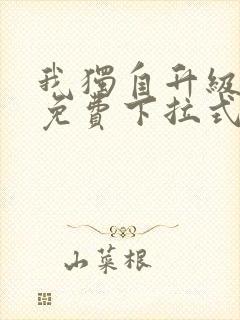 我獨自升級
免費下拉式
山菜根